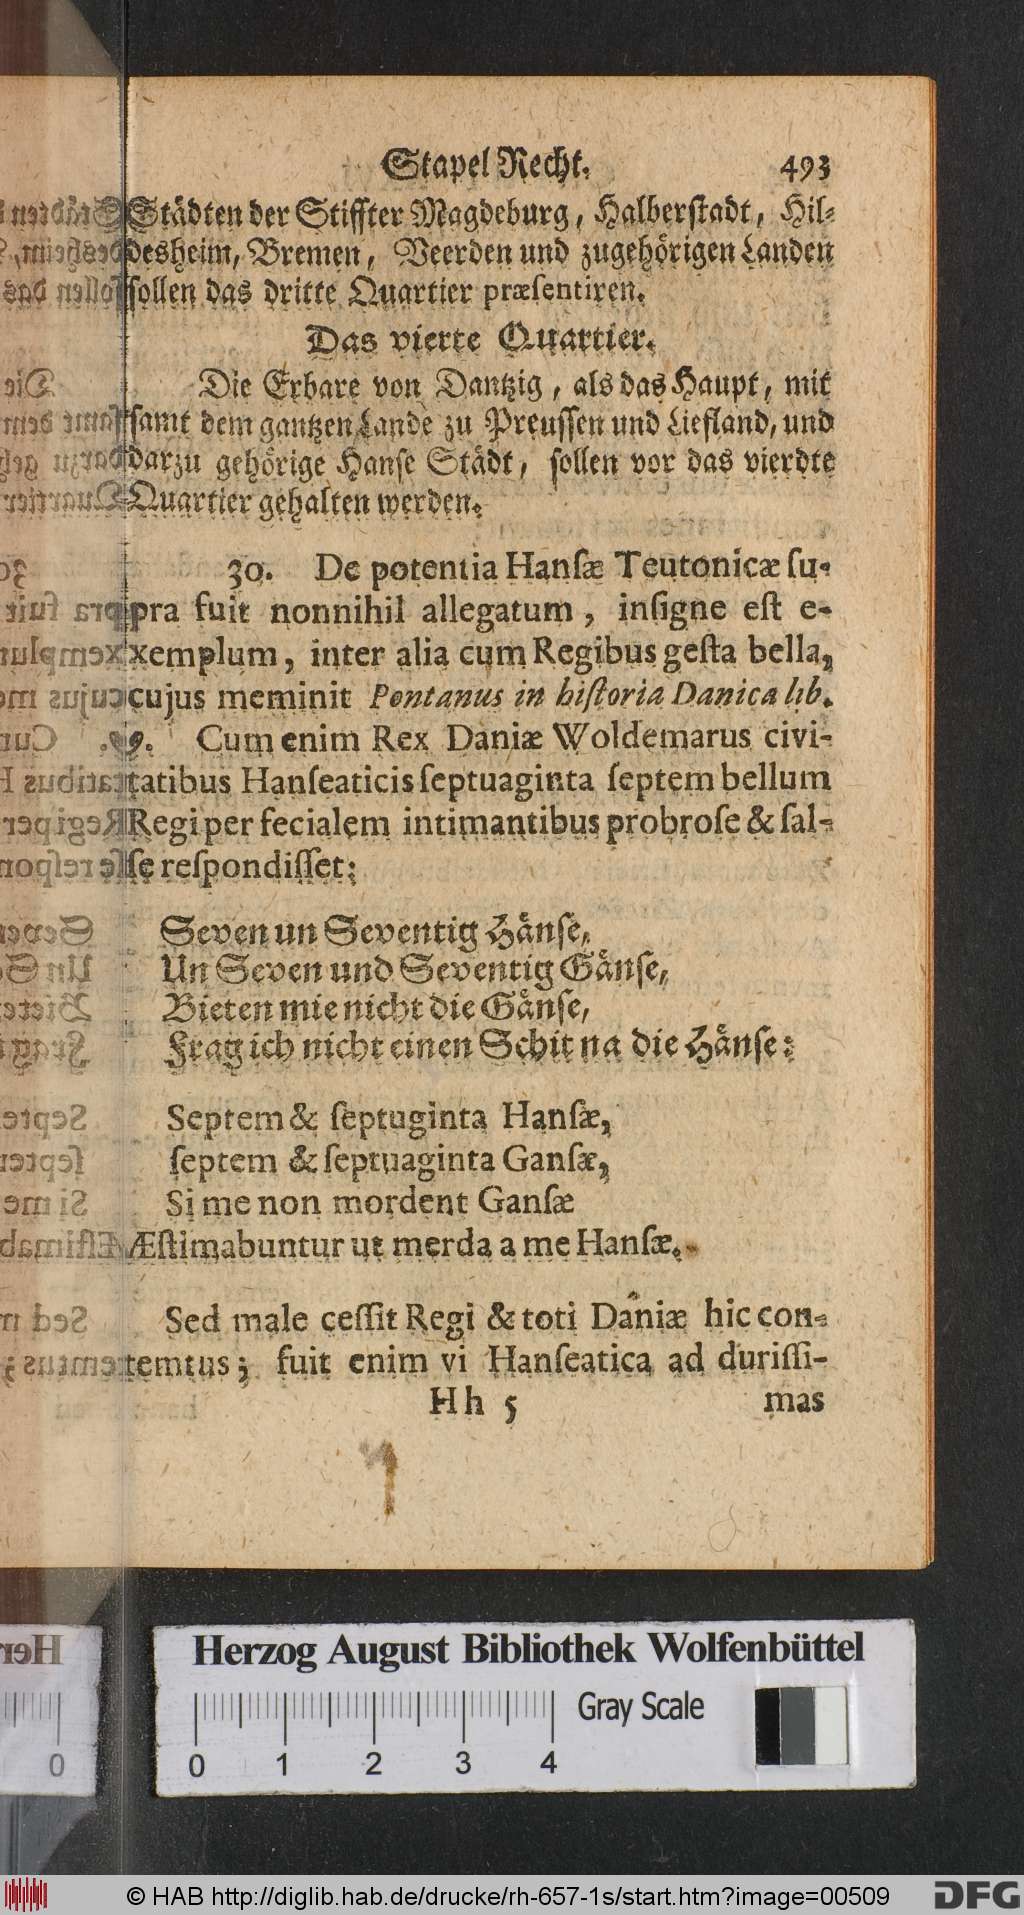 Stapel Recht. 493
Städten der Stiffter Magdeburg, Halberstadt, Hil-
desheim, Bremen, Veerden und zugehörigen Landen
sollen das dritte Quartier præsentiren.
Das vierte Quartier.
Die Erbare von Dantzig, als das Haupt, mit
samt dem gantzen Lande zu Preussen und Liefland, und
darzu gehörige Hanse Städt, sollen vor das vierdte
Quartier gehalten werden.
30. De potentia Hansæ Teutonicæ su-
pra fuit nonnihil allegatum, insigne est e-
xemplum, inter alia cum Regibus gesta bella,
cujus meminit Pontanus in historia Danica lib.
9. Cum enim Rex Daniæ Woldemarus civi-
tatibus Hanseaticis septuaginta septem bellum
Regi per fecialem intimantibus probrose & sal-
se respondisset:
Seven un Seventig Hänse,
Un Seven und Seventig Gänse,
Bieten mie nicht die Gänse,
Frag ich nicht einen Schit na die Hänse:
Septem & septuginta Hansæ,
septem & septuaginta Gansæ,
Si me non mordent Gansæ
Æstimabuntur ut merda a me Hansæ.
Sed male cessit Regi & toti Daniæ hic con-
temtus; fuit enim vi Hanseatica ad durissi-
Hh 5 mas
Herzog August Bibliothek Wolfenbüttel
Gray Scale
0 1 2 3 4
© HAB http://diglib.hab.de/drucke/rh-657-1s/start.htm?image=00509
DFG